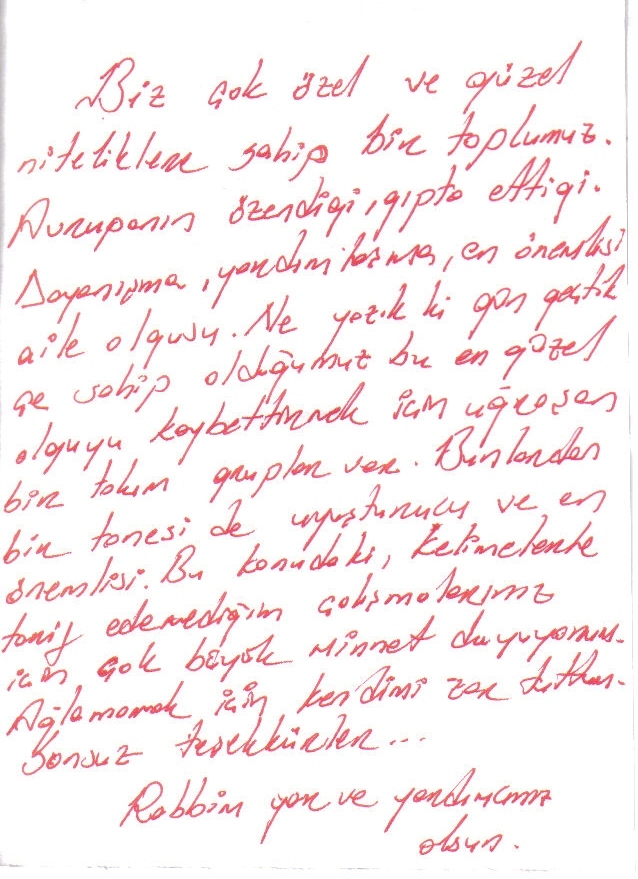 Biz çok özel ve güzel
niteliklere sahip bir toplumuz.
Avrupanın özendiği, gıpta ettiği.
Dayanışma, yardımlaşma, en önemlisi
aile olgusu. Ne yazık ki gün geçtik
çe sahip olduğumuz bu en güzel
olguyu kaybettirmek için uğraşan
bir takım gruplar var. Bunlardan
bir tanesi de uyuşturucu ve en
önemlisi. Bu konudaki, kelimelerle
tarif edemediğim çalışmalarınız
için çok büyük minnet duyuyorum.
Ağlamamak için kendimi zor tuttum.
Sonsuz teşekkürler...
Rabbim yar ve yardımcınız
olsun.